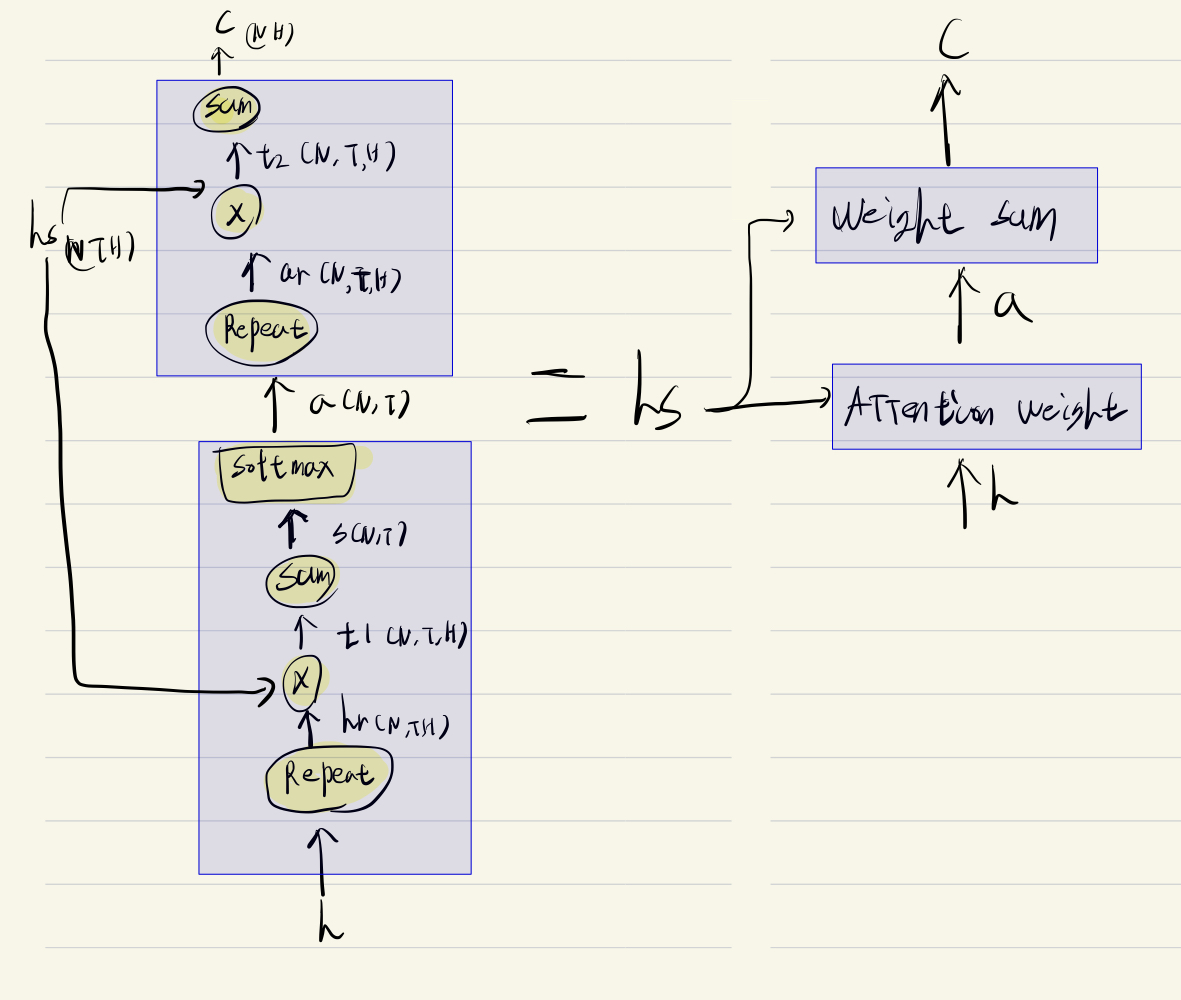 C (N H)
sum
t2 (N, T, H)
hs (N T H)
x
ar (N, T, H)
Repeat
a (N, T)
softmax
s (N, T)
sum
t1 (N, T, H)
x
hr (N, T H)
Repeat
h
=
hs
C
Weight sum
a
ATTention weight
h